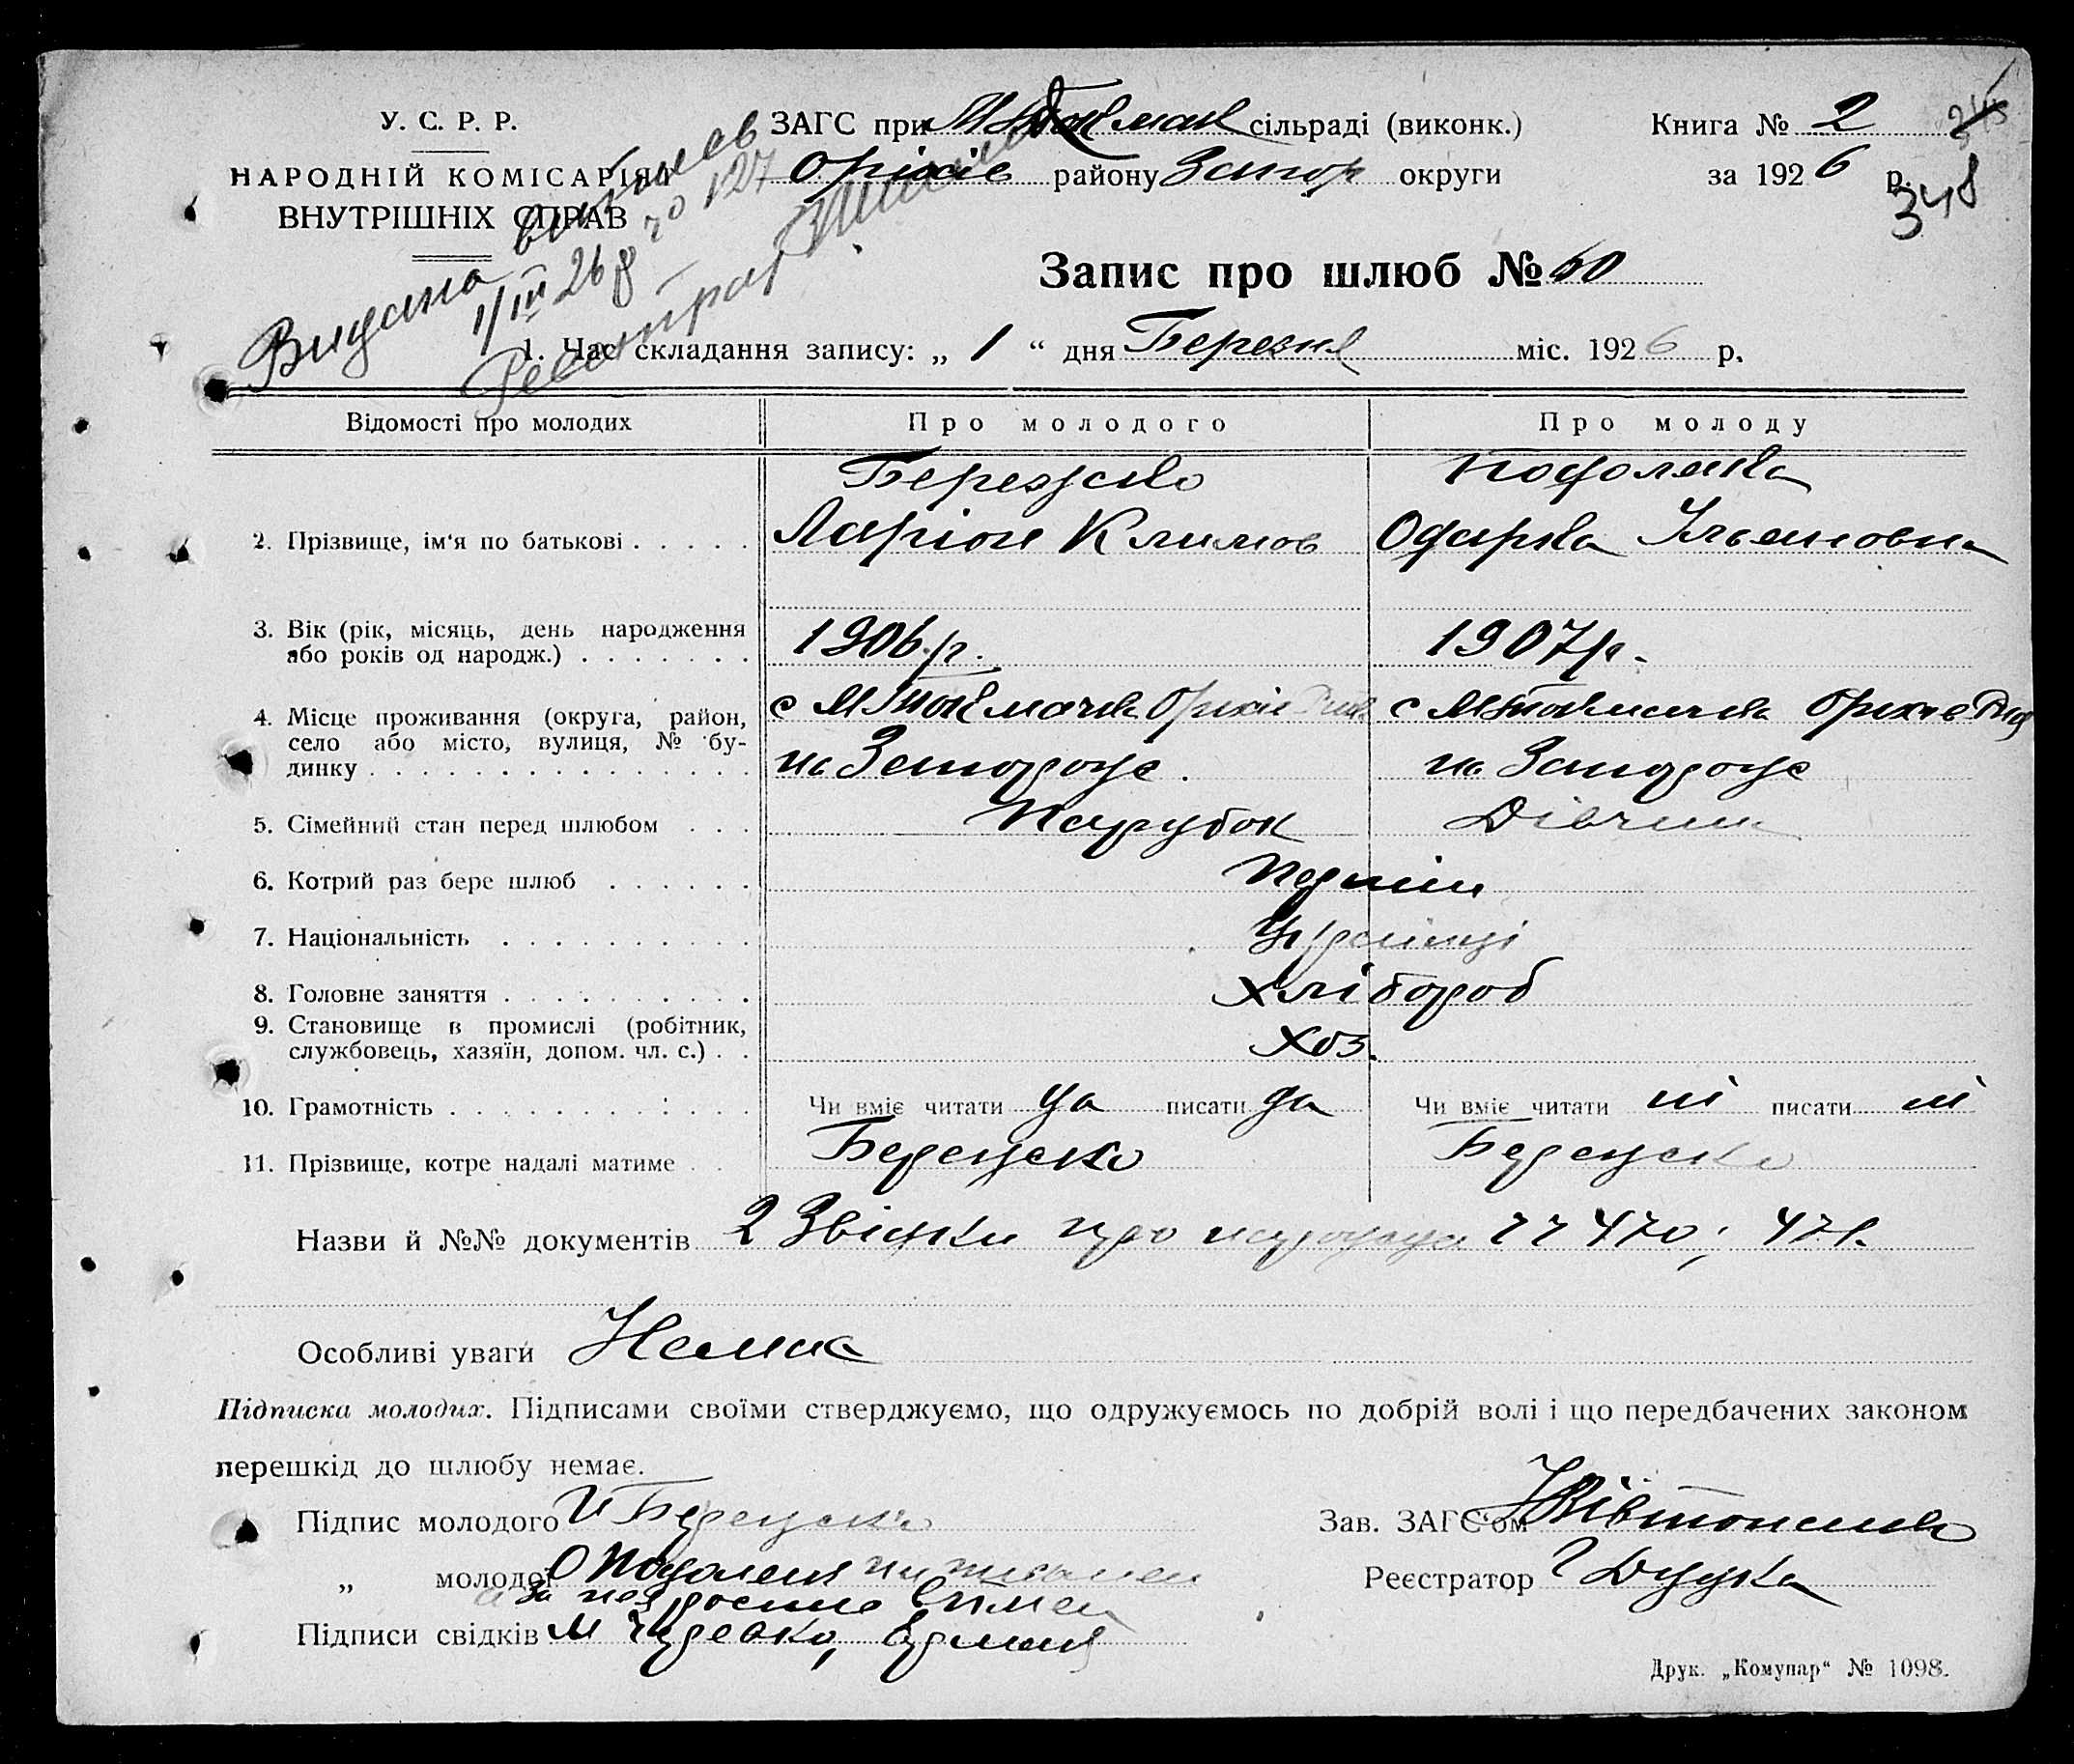 У. С. Р. Р.
НАРОДНІЙ КОМІСАРІЯТ
ВНУТРІШНІХ СПРАВ
ЗАГС при М Токмак сільраді (виконк.)
Оріхів району Запор округи
Книга № 2
за 1926 р.
348
Видана виконав
1/III 26 р
Реєстрат
Запис про шлюб № 60
1. Час складання запису: „ 1 “ дня Березня міс. 1926 р.
Відомості про молодих Про молодого Про молоду
2. Прізвище, ім'я по батькові . . . . . Березуско Ларіон Климов Подоляка Одарка Ільяновна
3. Вік (рік, місяць, день народження або років од народж.) . . . . . . . 1906 р. 1907 р.
4. Місце проживання (округа, район, село або місто, вулиця, № будинку . . . . . . . . . . . . . . . с М Токмачка Оріхів на Запорож. с М Токмачка Оріхів на Запорож
5. Сімейний стан перед шлюбом . . . Парубок Дівчина
6. Котрий раз бере шлюб . . . . . . Перший
7. Національність . . . . . . . . . . Українці
8. Головне заняття . . . . . . . . . . Хлібороб
9. Становище в промислі (робітник, службовець, хазяїн, допом. чл. с.) . . Хоз.
10. Грамотність . . . . . . . . . . . . Чи вміє читати да писати да Чи вміє читати ні писати ні
11. Прізвище, котре надалі матиме . . Березуско Березуско
Назви й №№ документів 2 Звідки про народжен 470; 471.
Особливі уваги Немає
Підписка молодих. Підписами своїми стверджуємо, що одружуємось по добрій волі і що передбачених законом
перешкід до шлюбу немає.
Підпис молодого Березуско
Зав. ЗАГС'ом
„ молодої О Подоляка
Реєстратор Дудка
за неї
Підписи свідків М
Друк. „Комунар“ № 1098.